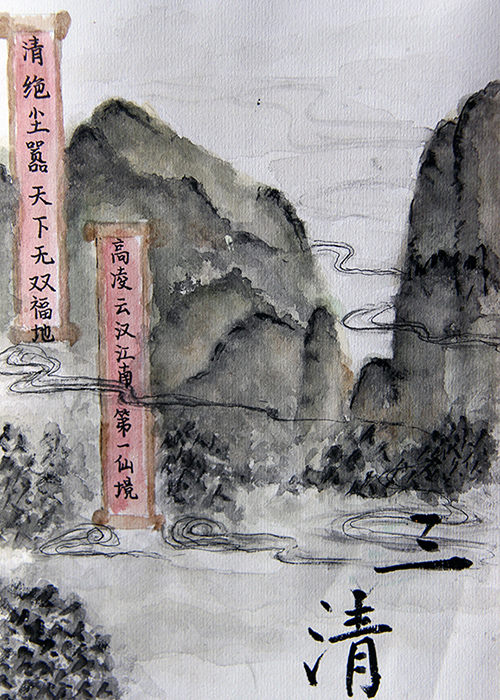 清绝尘嚣天下无双福地
高凌云汉江南第一仙境
三清